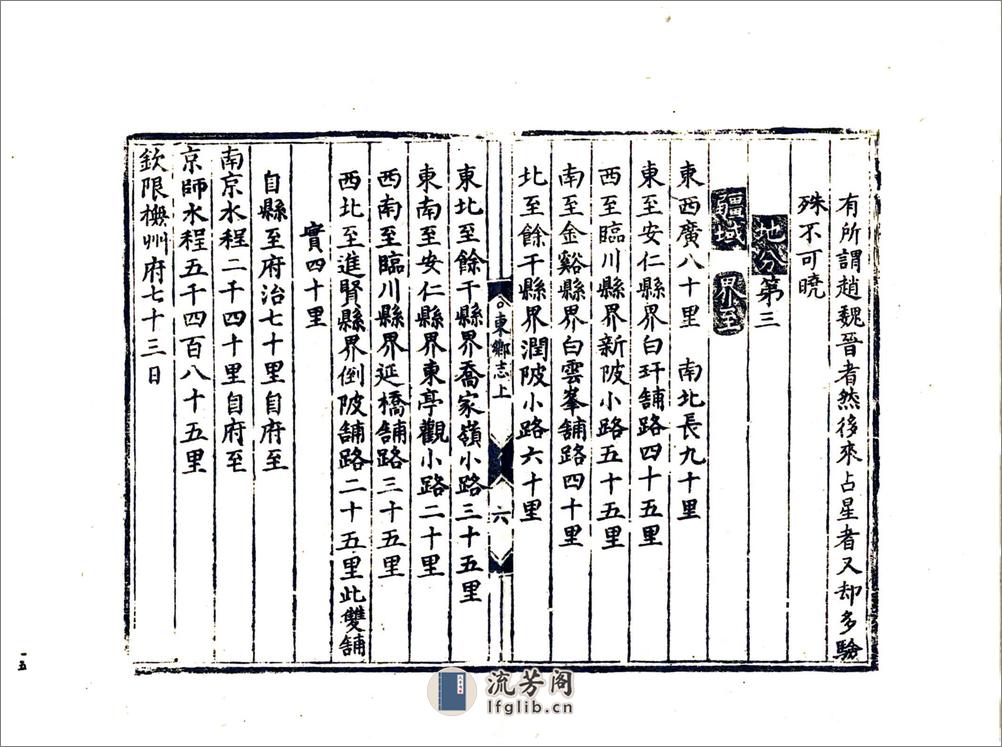 有所謂趙魏晉者然後來占星者又却多驗
殊不可曉
地分第三
疆域 界至
東西廣八十里 南北長九十里
東至安仁縣界白玕舖路四十五里
西至臨川縣界新陂小路五十五里
南至金谿縣界白雲峯舖路四十里
北至餘干縣界潤陂小路六十里
東鄉志上
六
東北至餘干縣界喬家嶺小路三十五里
東南至安仁縣界東亭觀小路二十里
西南至臨川縣界延橋舖路三十五里
西北至進賢縣界倒陂舖路二十五里此雙舖
實四十里
自縣至府治七十里自府至
南京水程二千四十里自府至
京師水程五千四百八十五里
欽限撫州府七十三日
一五
流芳阁
lfglib.cn